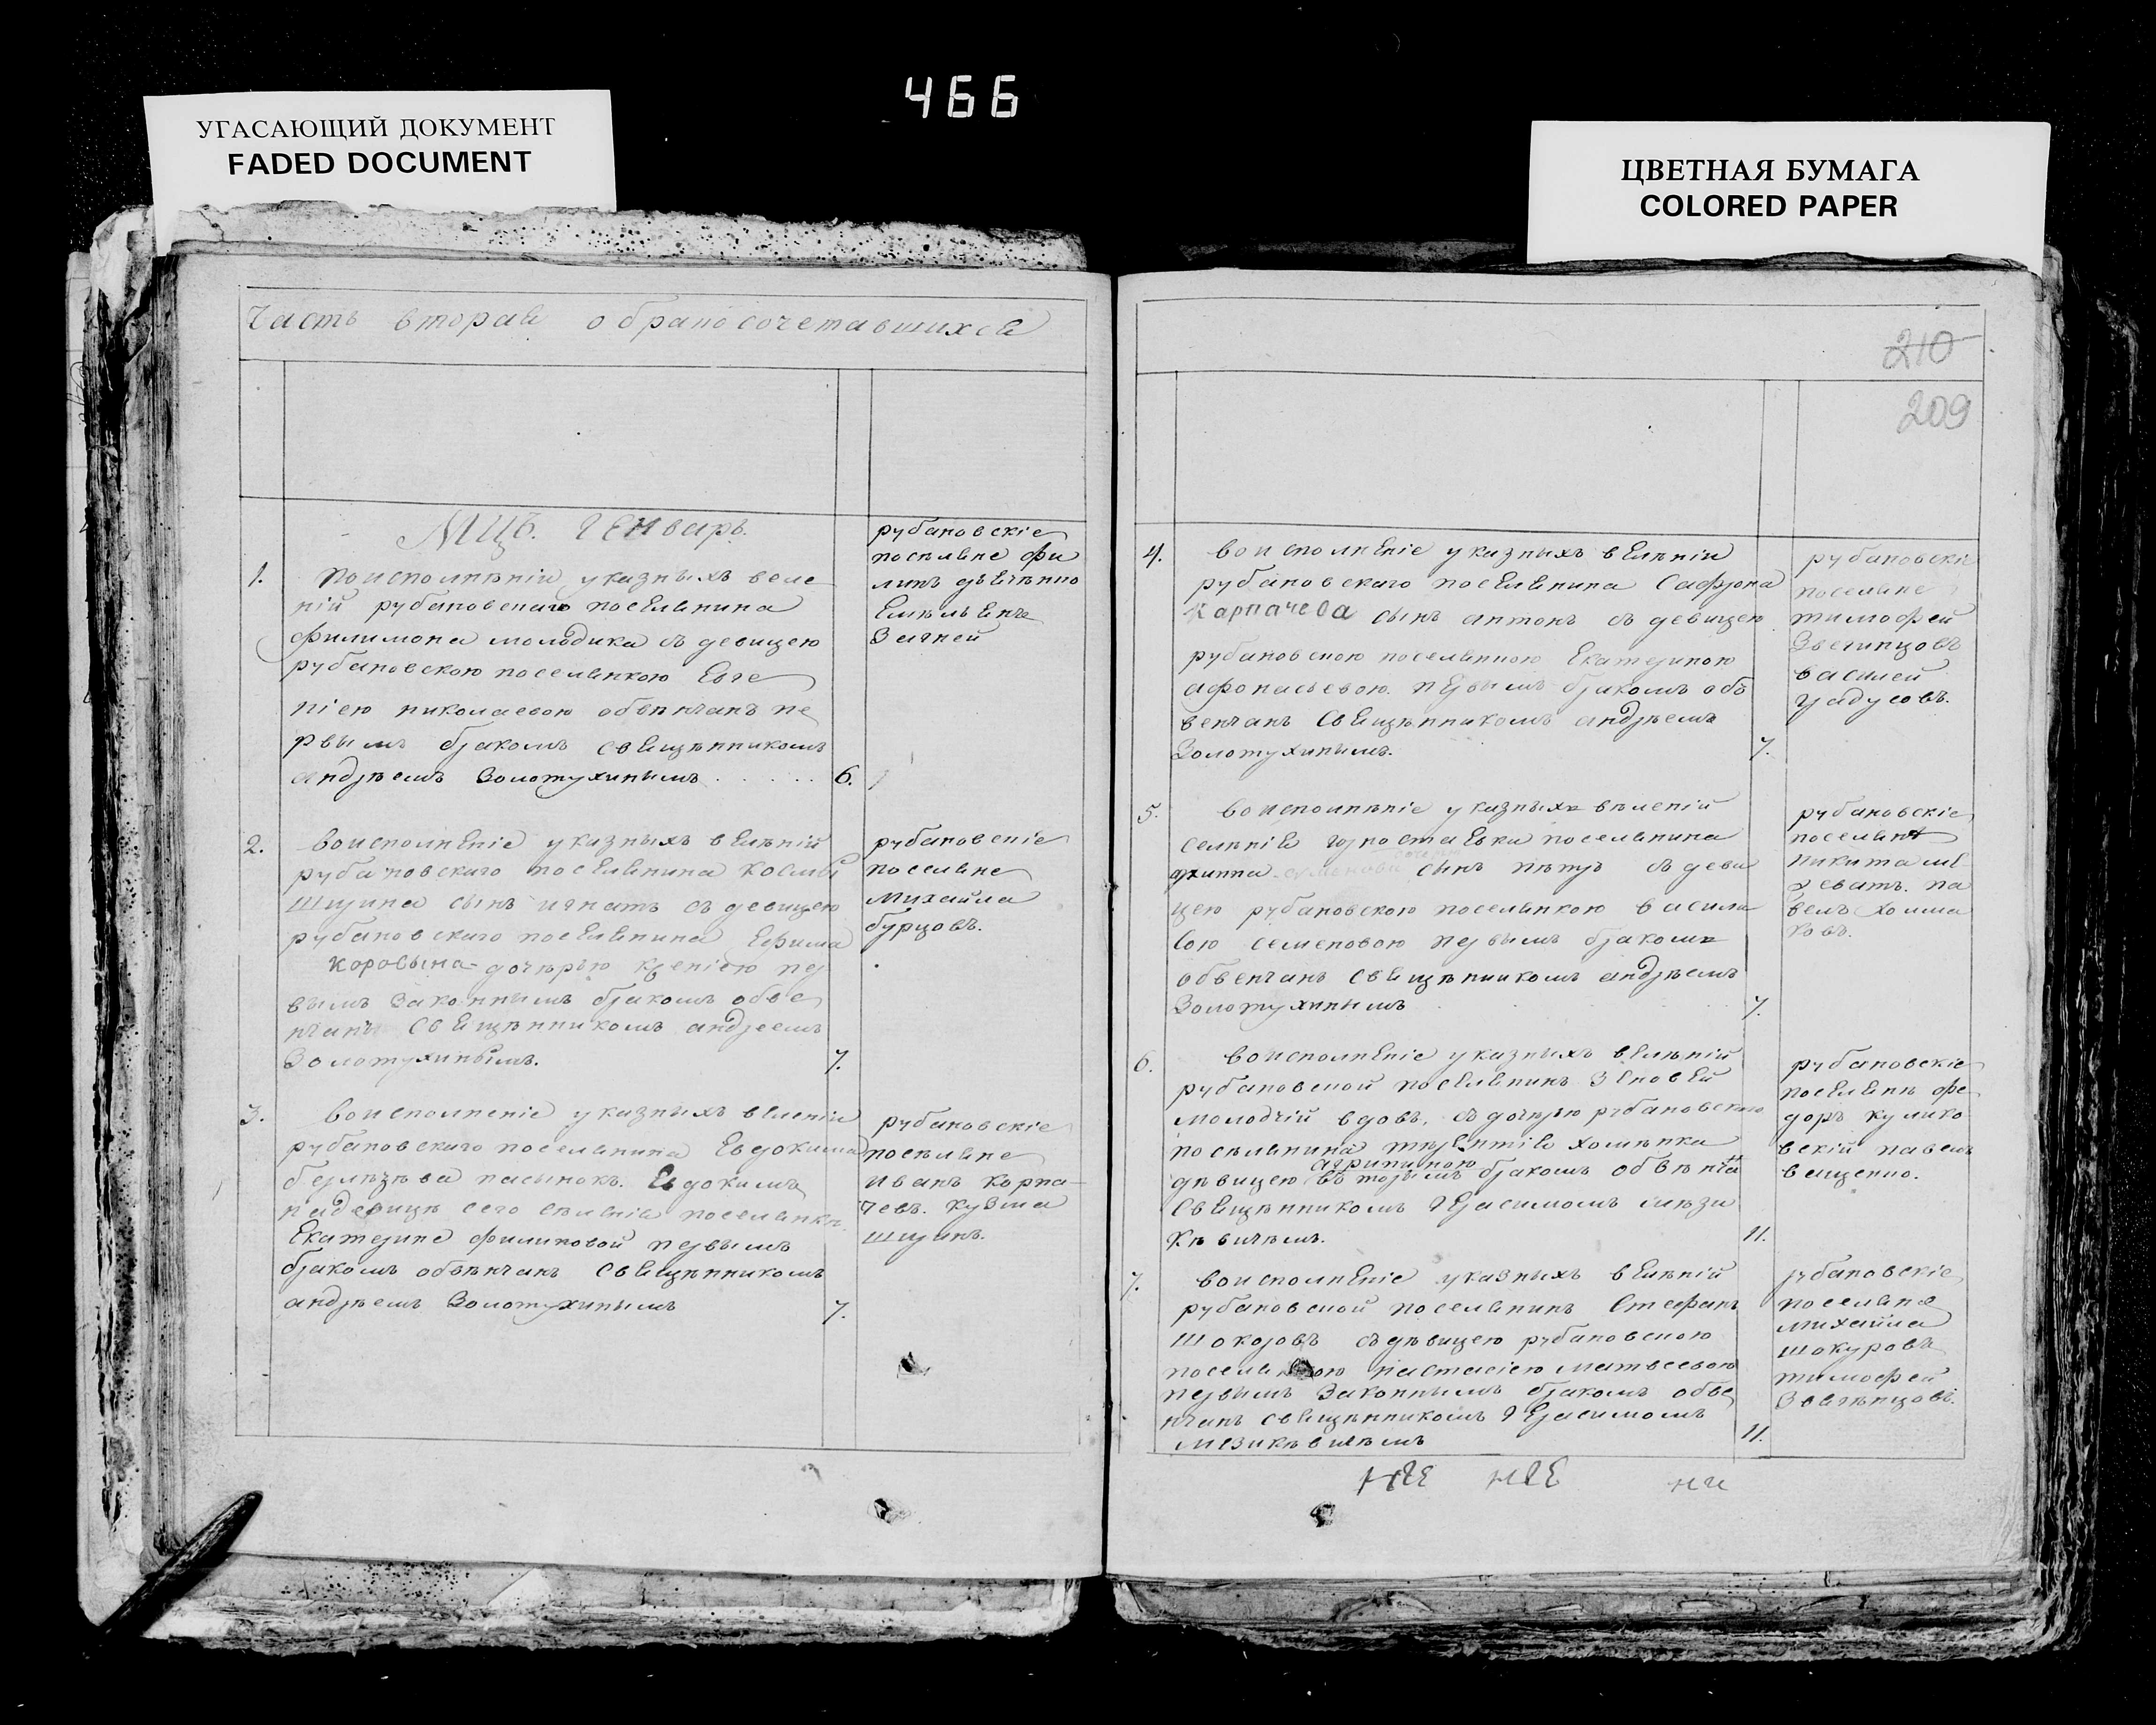 466
УГАСАЮЩИЙ ДОКУМЕНТ
FADED DOCUMENT
ЦВЕТНАЯ БУМАГА
COLORED PAPER
Часть вторая обрапосочетавшихся
Мцъ. Генварь.
1.
поисполнѣнiи указныхъ веле
нiй рубановскаго поселянина
филимона молодика съ девицею
рубановскою поселянкою Евге
нiею николаевою обвѣнчанъ пе
рвымъ бракомъ священникомъ
андрѣемъ Золотухинымъ . . . . . 6.
рубановскiе
посѣляне фи
липъ
Емѣльянъ
2.
воисполненiе указныхъ велѣнiй
рубановскаго поселянина Космы
Шурина сынъ игнатъ съ девицею
рубановскаго поселянина Ефима
Коровына дочѣрью пер
вымъ законнымъ бракомъ обве
нчанъ Священникомъ андреемъ
Золотухинымъ. 7.
рубановскiе
поселяне
Михайла
бурцовъ.
3.
воисполненiе указныхъ веленiи
рубановскаго поселянина Евдокима
пасынокъ. Евдокимъ
сего селенiя поселянки
Екатерине филиповой первымъ
бракомъ обвѣнчанъ Священникомъ
андрѣемъ Золотухинымъ 7.
рубановскiе
посѣляне
иванъ Корпа
чевъ. кузма
шуринъ.
210
209
4.
воисполненiе указныхъ велѣнiи
рубановскаго поселянина Сафрона
Карпачева сынъ антонъ съ девицею
рубановскою поселянкою Екатериною
афонасьевою первымъ бракомъ объ
венчанъ Священникомъ андрѣемъ
Золотухинымъ. 7.
рубановскiе
поселяне
тимофей
Звегинцовъ
василей
5.
воисполнѣнiе указныхъ вѣленiй
селѣнiя горностаевки поселянина
сынъ пѣтръ съ деви
цею рубановскою поселянкою васили
сою семеновою первымъ бракомъ
обвенчанъ Священникомъ андрѣемъ
Золотухинымъ 7.
рубановскiе
поселяня
никита
па
велъ холма
ковъ.
6.
воисполненiе указныхъ велѣнiй
рубановской поселянинъ Зеновей
молодчiй вдовъ. съ дочѣрью рубановскаго
посѣлянина терентiя хомѣнка
агрипиною
дѣвицею вторымъ бракомъ обвѣнча
Священникомъ Герасимомъ мѣзи
кѣвичѣмъ. 11.
рубановскiе
поселянѣ фе
доръ кулико
вскiй павелъ
вещенко.
7.
воисполненiе указныхъ велѣнiй
рубановской поселянинъ Стефанъ
шокоровъ съ дѣвицею рубановскою
поселянкою настасiею матвеевою
первымъ законнымъ бракомъ обве
нчанъ священникомъ Герасимомъ
мезикѣвичѣмъ 11.
рубановскiе
поселяня
михайла
шокуровъ
тимофей